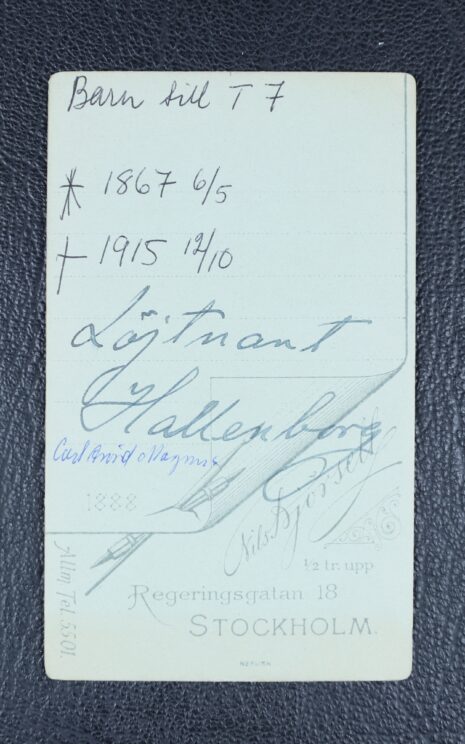 Barn till T 7
* 1867 6/5
† 1915 12/10
Löjtnant
Hallenborg
Carl Arvid Magnus
1888
Nils Björsell
½ tr. upp
Regeringsgatan 18
STOCKHOLM.
Allm Tel 5501